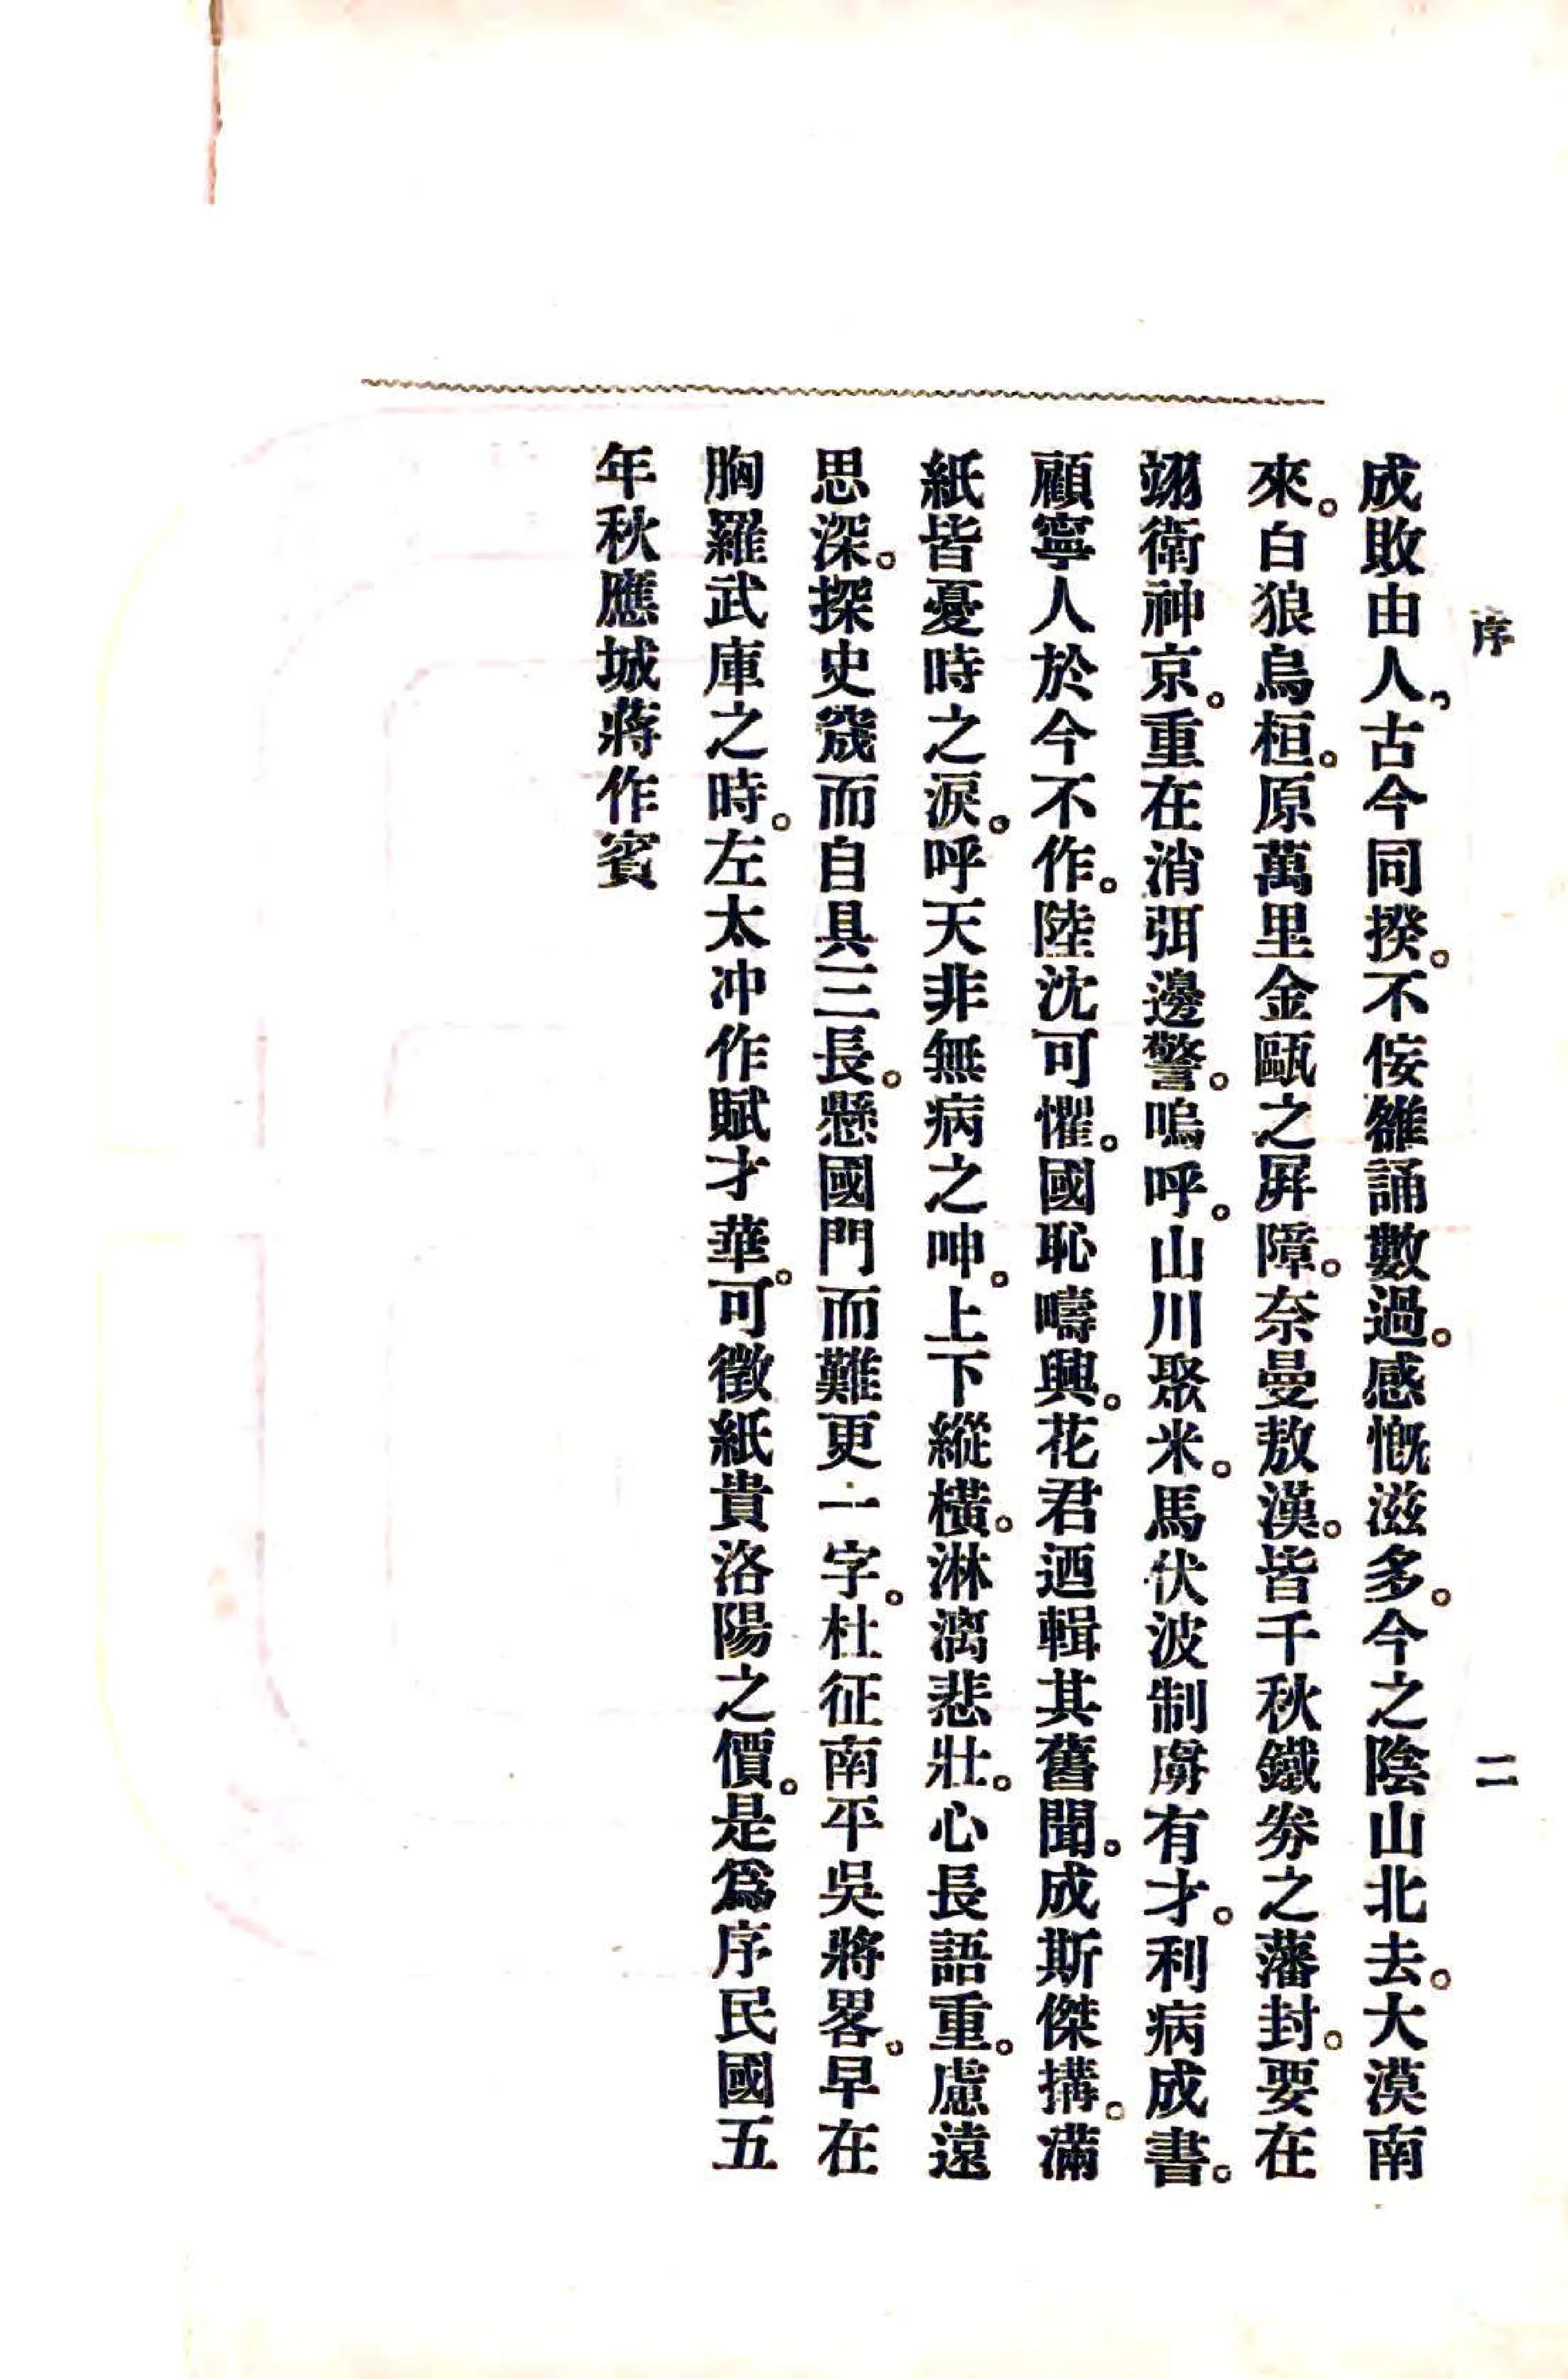 序
二
成敗由人，古今同揆。不佞雒誦數過。感慨滋多。今之陰山北去。大漠南
來。白狼烏桓。原萬里金甌之屛障。奈曼敖漢。皆千秋鐵券之藩封。要在
翊衛神京。重在消弭邊警。嗚呼。山川聚米。馬伏波制虜有才。利病成書。
顧寧人於今不作。陸沈可懼。國恥疇興。花君迺輯其舊聞。成斯傑搆。滿
紙皆憂時之淚。呼天非無病之呻。上下縱橫。淋漓悲壯。心長語重。慮遠
思深。探史窾而自具三長。懸國門而難更一字。杜征南平吳將畧。早在
胸羅武庫之時。左太冲作賦才華。可徵紙貴洛陽之價。是爲序民國五
年秋應城蔣作賓